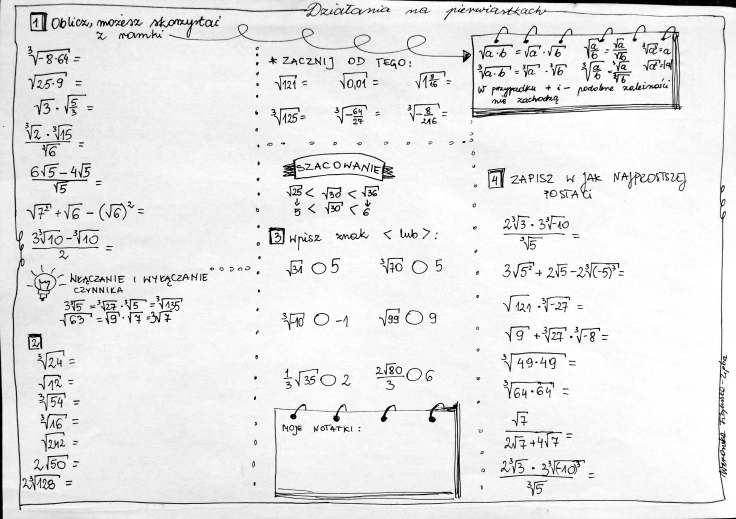 Działania na pierwiastkach
1 Oblicz, możesz skorzystać
z ramki
∛(-8·64) =
√(25·9) =
√3 · √(5/3) =
(∛2 · ∛15)/∛6 =
(6√5 - 4√5)/√5 =
√(7²) + √6 - (√6)² =
(3∛10 - ∛10)/2 =
WŁĄCZANIE I WYŁĄCZANIE
CZYNNIKA
3∛5 = ∛27 · ∛5 = ∛135
√63 = √9 · √7 = 3√7
2
∛24 =
√12 =
∛54 =
∛16 =
√242 =
2√50 =
2∛128 =
* ZACZNIJ OD TEGO:
√121 = √0,01 = √(1 9/16) =
∛125 = ∛(-64/27) = ∛(-8/216) =
SZACOWANIE
√25 < √30 < √36
5 < √30 < 6
3 Wpisz znak < lub >:
√31 ○ 5 ∛70 ○ 5
∛-10 ○ -1 √99 ○ 9
1/3 √35 ○ 2 2√80/3 ○ 6
MOJE NOTATKI:
√(a·b) = √a · √b √(a/b) = √a/√b ∛(a³) = a
∛(a·b) = ∛a · ∛b ∛(a/b) = ∛a/∛b √(a²) = |a|
W przypadku + i - podobne zależności
nie zachodzą
4 ZAPISZ W JAK NAJPROSTSZEJ
POSTACI
(2∛3 · 3∛-10)/∛5 =
3√5² + 2√5 - 2∛(-5)³ =
√121 · ∛-27 =
√9 + ∛27 · ∛-8 =
∛(√(49·49)) =
∛(64·64) =
√7/(2√7 + 4√7) =
(2∛3 · 3∛(-10)³)/∛5 =